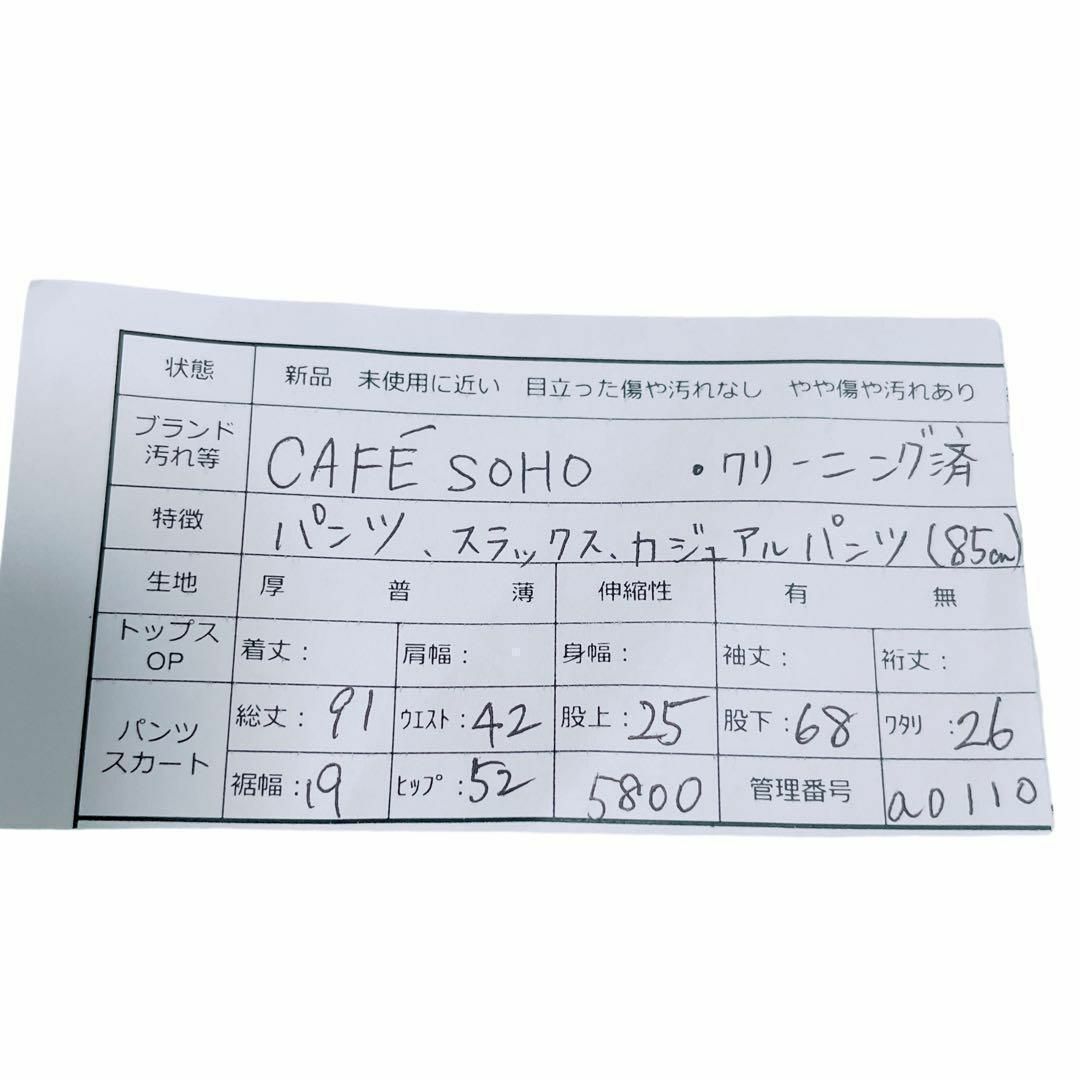 状態 新品 未使用に近い 目立った傷や汚れなし やや傷や汚れあり
ブランド
汚れ等 CAFÉ SOHO ・クリーニング済
特徴 パンツ、スラックス、カジュアルパンツ(85cm)
生地 厚 普 薄 伸縮性 有 無
トップス
OP 着丈: 肩幅: 身幅: 袖丈: 裄丈:
パンツ
スカート 総丈:91 ウエスト:42 股上:25 股下:68 ワタリ:26
裾幅:19 ヒップ:52 5800 管理番号 a0110